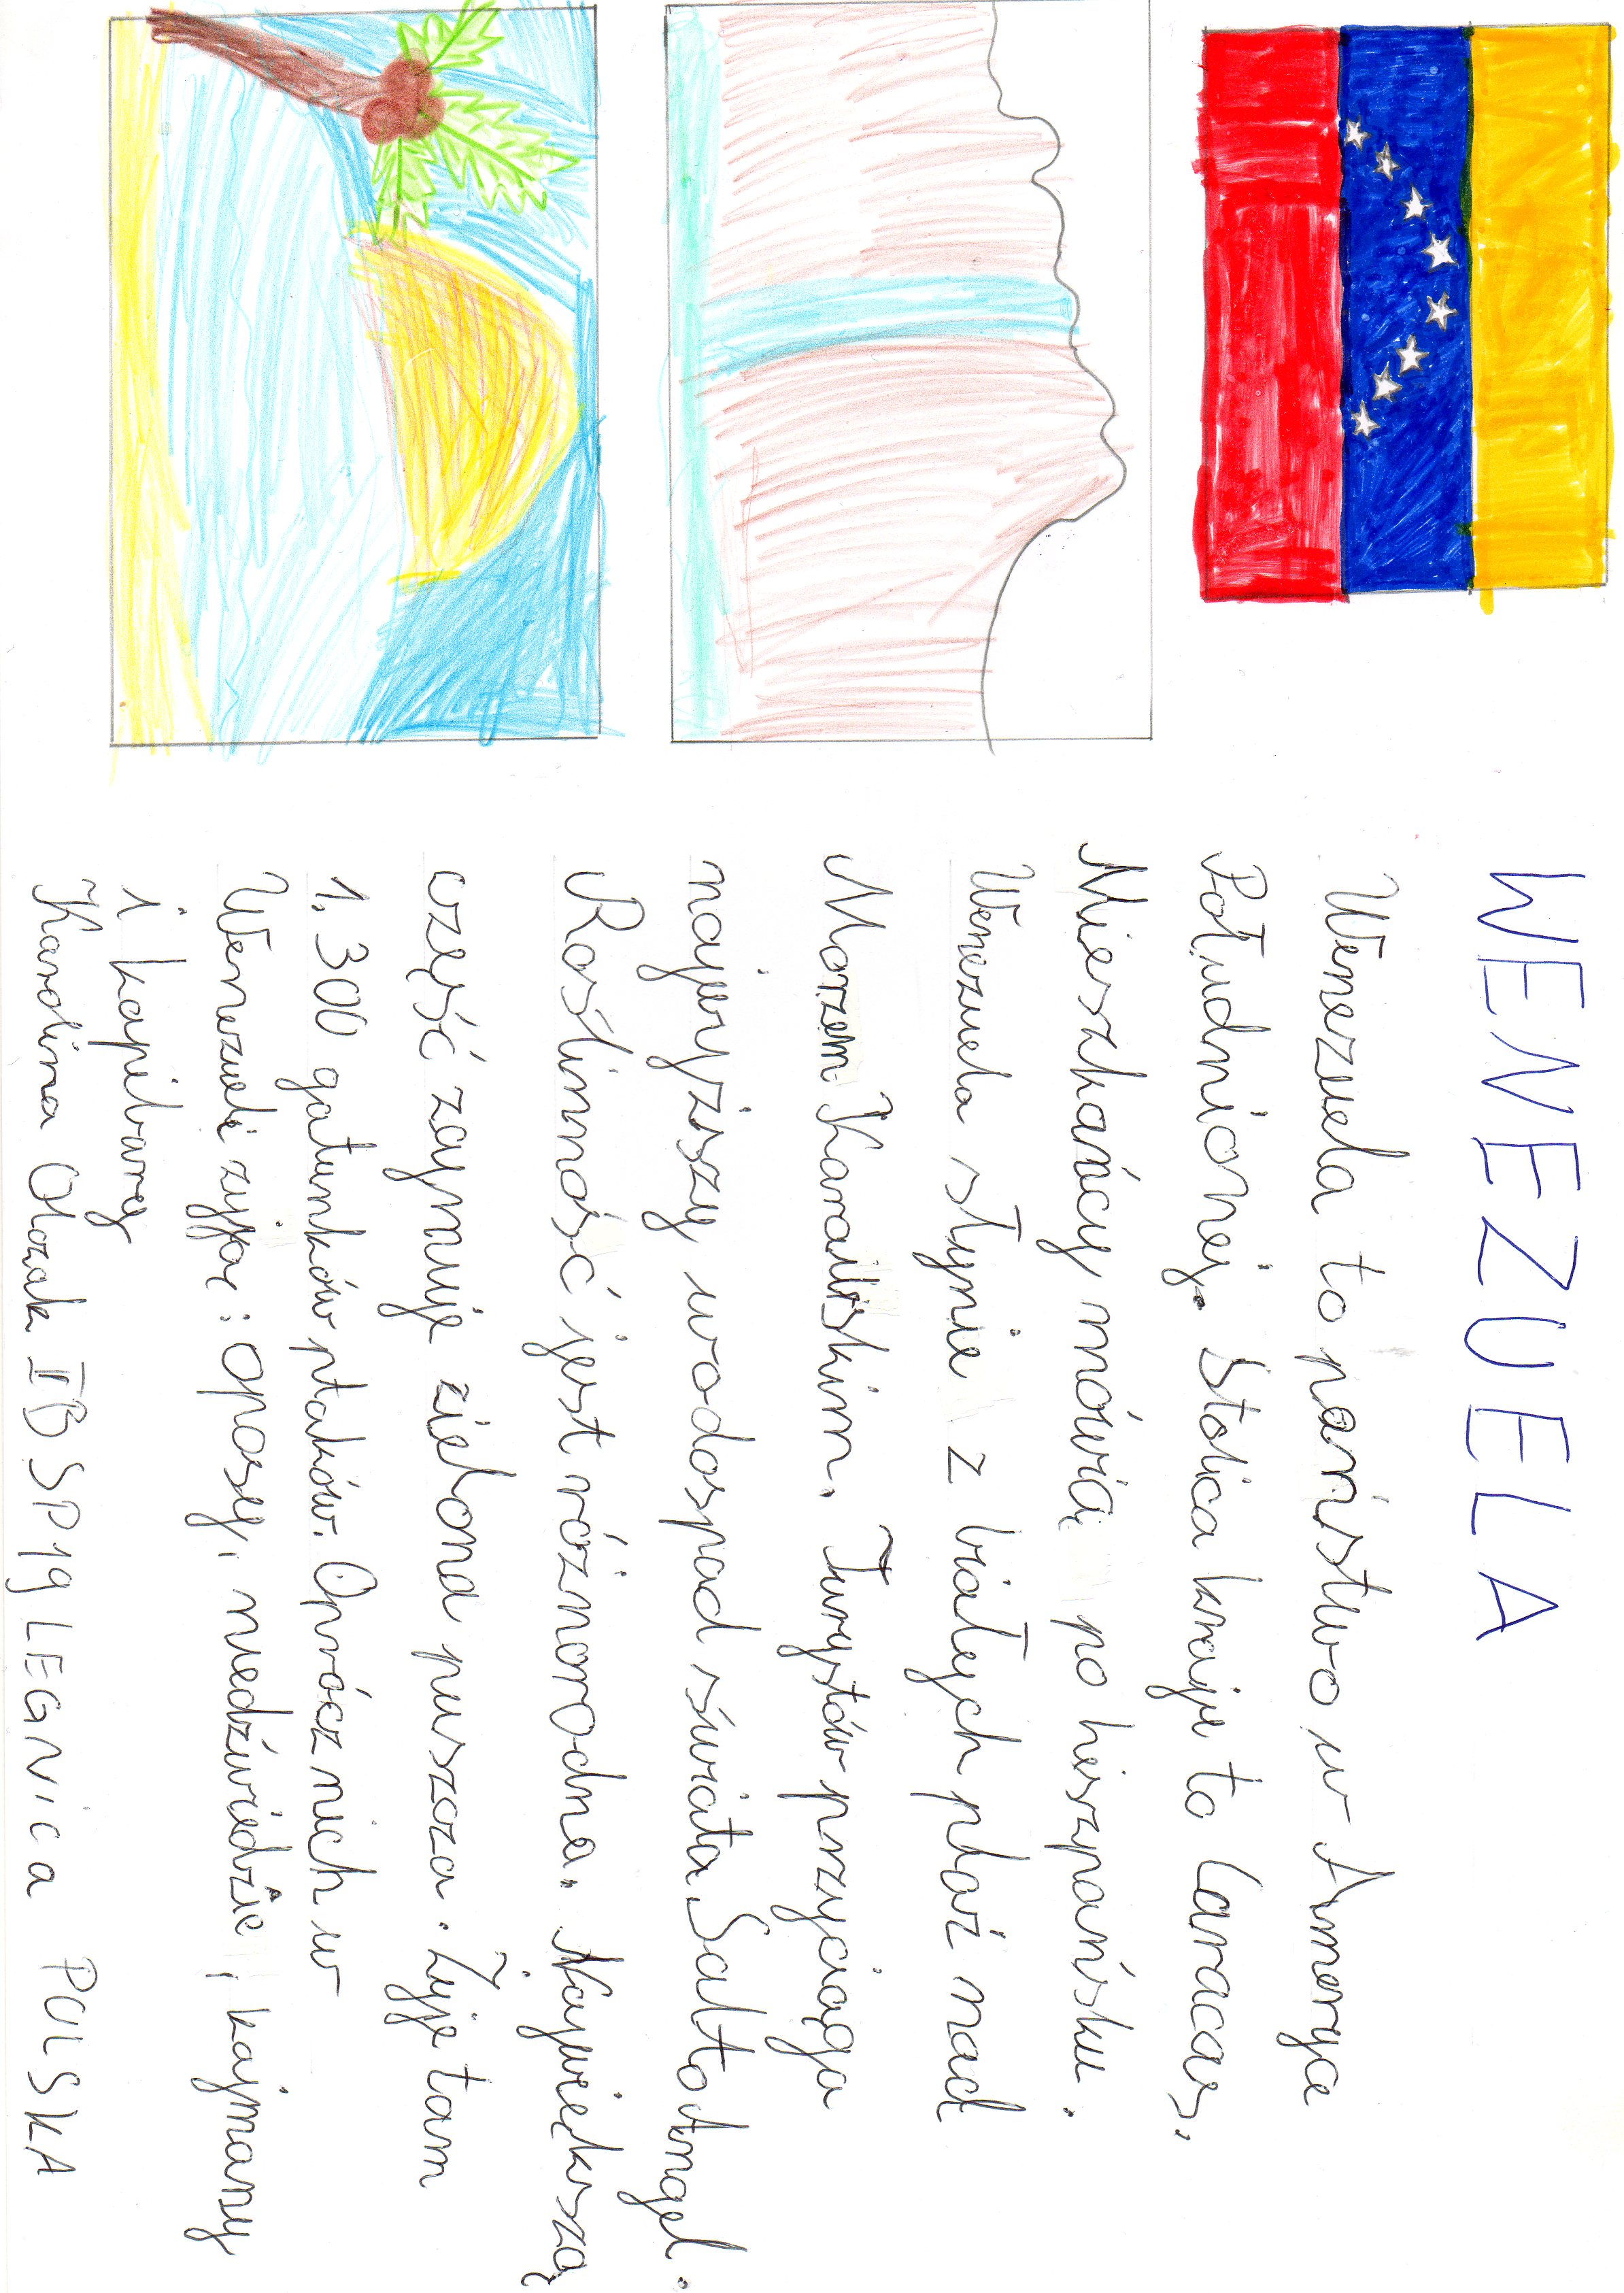 WENEZUELA
Wenezuela to państwo w Ameryce
Południowej. Stolica kraju to Caracas.
Mieszkańcy mówią po hiszpańsku.
Wenezuela słynie z białych plaż nad
Morzem Karaibskim. Turystów przyciąga
najwyższy wodospad świata Salto Angel.
Roślinność jest różnorodna. Największą
część zajmuje zielona puszcza. Żyje tam
1.300 gatunków ptaków. Oprócz nich w
Wenezueli żyją: oposy, niedźwiedzie, kajmany
i kapibary
Karolina Olczak IB SP19 LEGNICA POLSKA